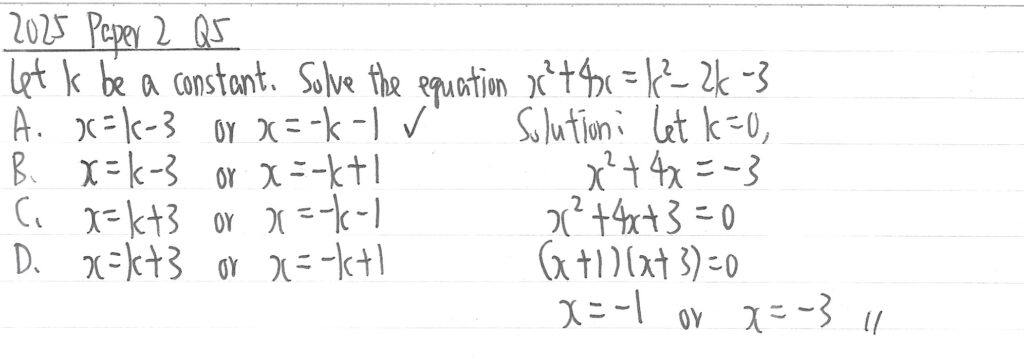 2025 Paper 2 Q5
Let k be a constant. Solve the equation x²+4x = k² - 2k - 3
A. x = k-3 or x = -k-1 ✓
B. x = k-3 or x = -k+1
C. x = k+3 or x = -k-1
D. x = k+3 or x = -k+1
Solution: Let k=0,
x² + 4x = -3
x² + 4x + 3 = 0
(x+1)(x+3)=0
x = -1 or x = -3 //